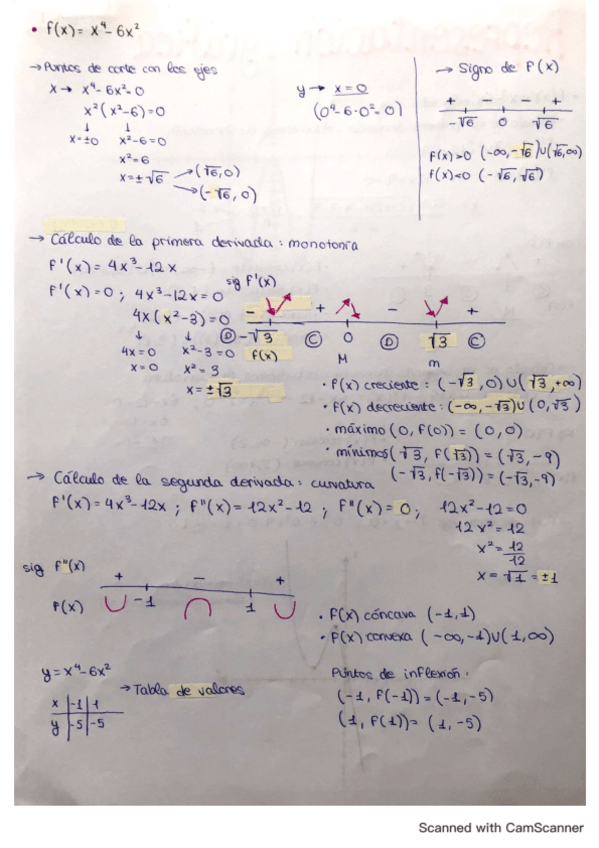 • f(x) = x⁴ - 6x²
→ Puntos de corte con los ejes
x → x⁴ - 6x² = 0
x² (x² - 6) = 0
↓ ↓
x = ±0 x² - 6 = 0
x² = 6
x = ± √6 → (√6, 0)
→ (-√6, 0)
y → x = 0
(0⁴ - 6 · 0² = 0)
→ Signo de f(x)
+ - - +
-√6 0 √6
f(x) > 0 (-∞, -√6) ∪ (√6, ∞)
f(x) < 0 (-√6, √6)
→ Cálculo de la primera derivada: monotonía
f'(x) = 4x³ - 12x
f'(x) = 0 ; 4x³ - 12x = 0
4x (x² - 3) = 0
↓ ↓
4x = 0 x² - 3 = 0
x = 0 x² = 3
x = ± √3
sig f'(x)
- + - +
D -√3 C 0 D √3 C
f(x) M m
• f(x) creciente : (-√3, 0) ∪ (√3, +∞)
• f(x) decreciente : (-∞, -√3) ∪ (0, √3)
• máximo (0, f(0)) = (0, 0)
• mínimos (√3, f(√3)) = (√3, -9)
(-√3, f(-√3)) = (-√3, -9)
→ Cálculo de la segunda derivada: curvatura
f'(x) = 4x³ - 12x ; f''(x) = 12x² - 12 ; f''(x) = 0 ; 12x² - 12 = 0
12x² = 12
x² = 12/12
x = √1 = ±1
sig f''(x)
+ - +
f(x) ∪ -1 ∩ 1 ∪
• f(x) cóncava (-1, 1)
• f(x) convexa (-∞, -1) ∪ (1, ∞)
y = x⁴ - 6x²
x | -1 | 1
y | -5 | -5
→ Tabla de valores
Puntos de inflexión:
(-1, f(-1)) = (-1, -5)
(1, f(1)) = (1, -5)
Scanned with CamScanner